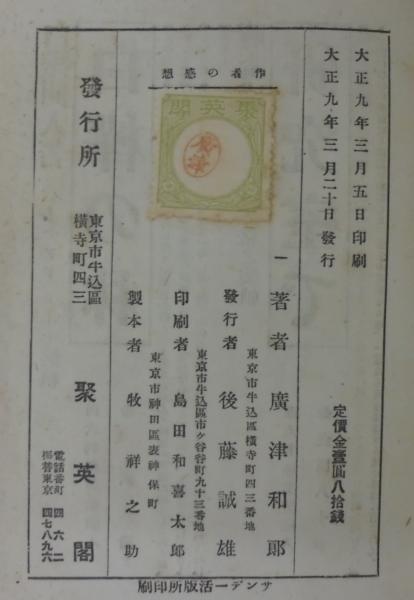 大正九年三月五日印刷
大正九年三月二十日發行
定價金壹圓八拾錢
想感の者作
閣英聚
廣津
著者 廣津和郎
東京市牛込區橫寺町四三番地
發行者 後藤誠雄
東京市牛込區市ケ谷谷町九十三番地
印刷者 島田和喜太郎
東京市神田區表神保町
製本者 牧祥之助
發行所
東京市牛込區
橫寺町四三
聚英閣
電話番町 四六一二
振替東京 四七八九六
刷印所版活一デンサ